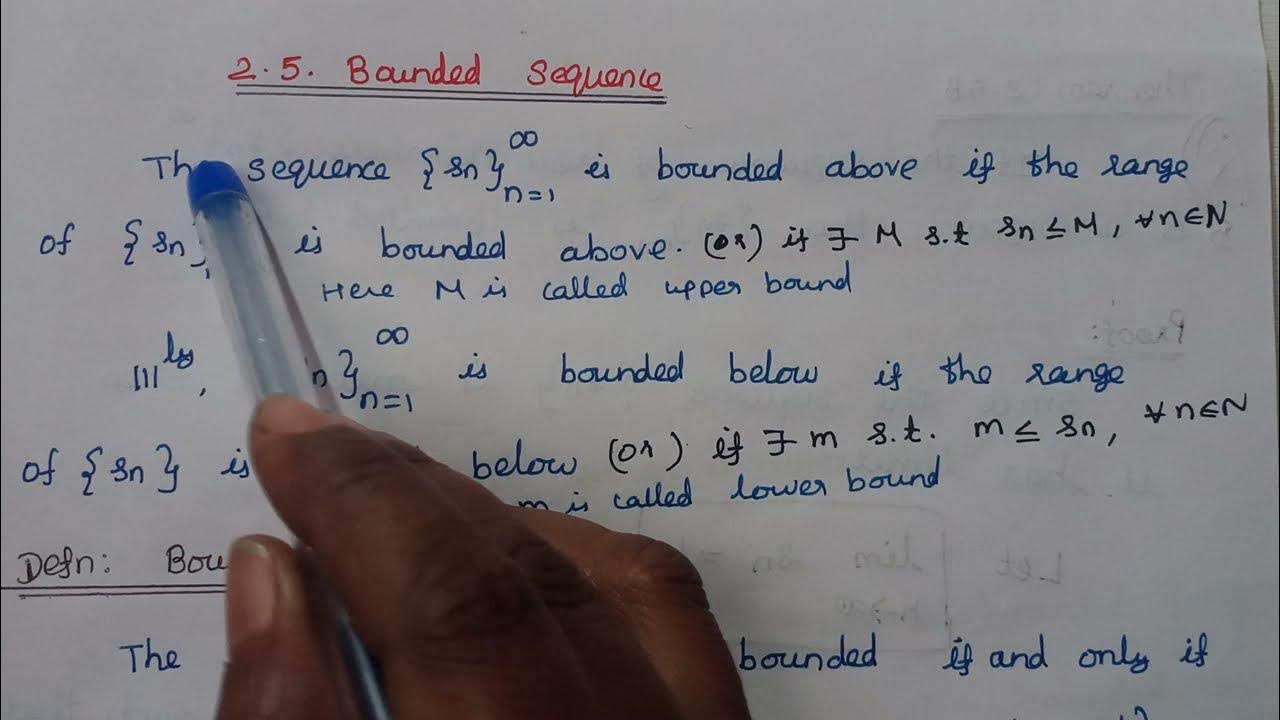 2.5. Bounded Sequence
The sequence {sn}∞n=1 is bounded above if the range
of {sn is bounded above. (or) if ∃ M s.t sn ≤ M, ∀ n ∈ N
Here M is called upper bound
|||ly, n}∞n=1 is bounded below if the range
of {sn} is below (or) if ∃ m s.t. m ≤ sn, ∀ n ∈ N
m is called lower bound
Defn: Bou
The bounded if and only if